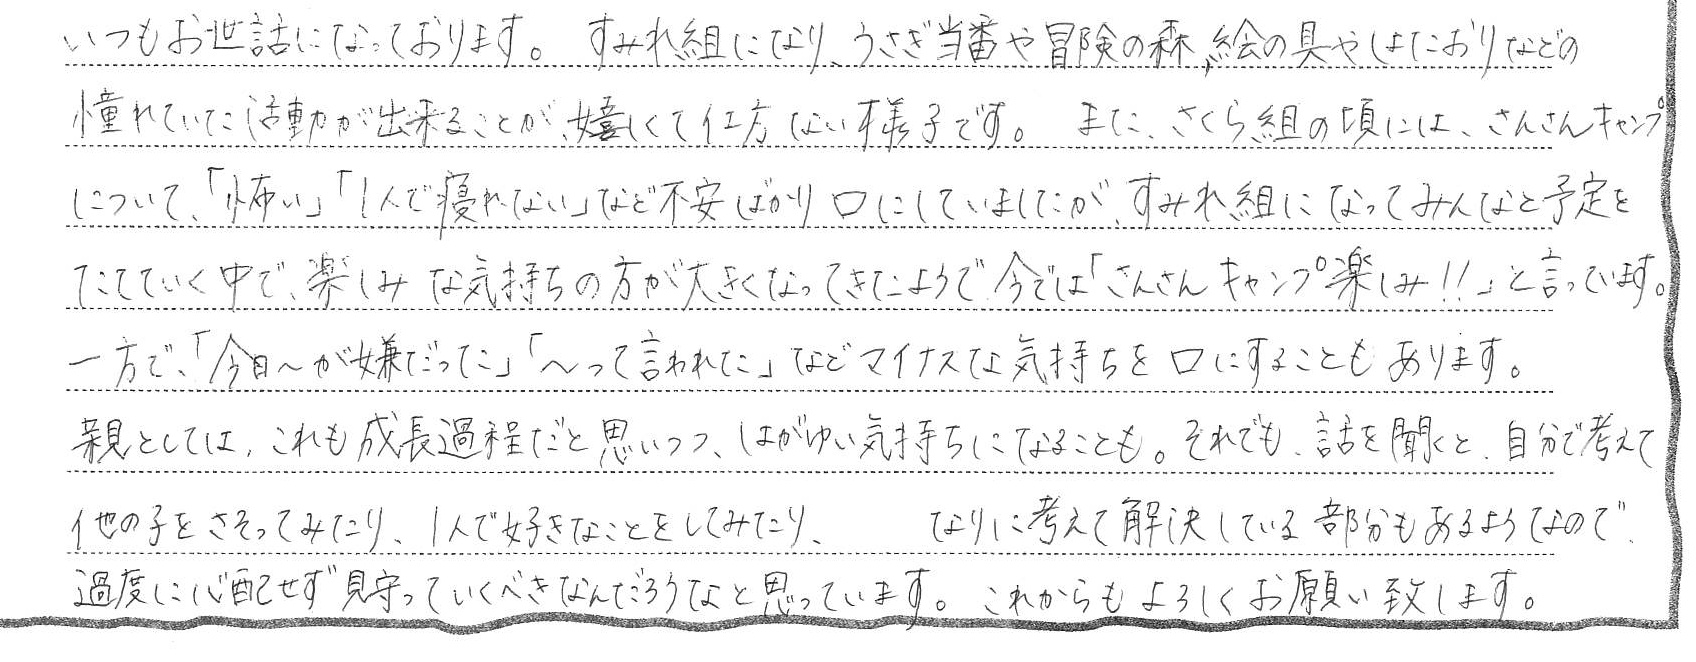 いつもお世話になっております。 すみれ組になり、うさぎ当番や冒険の森、絵の具やはたおりなどの
憧れていた活動が出来ることが、嬉しくて仕方ない様子です。 また、さくら組の頃には、さんさんキャンプ
について、「怖い」「1人で寝れない」など不安ばかり口にしていましたが、すみれ組になってみんなと予定を
たてていく中で、楽しみな気持ちの方が大きくなってきたようで今では「さんさんキャンプ楽しみ!!」と言っています。
一方で、「今日〜が嫌だった」「〜って言われた」などマイナスな気持ちを口にすることもあります。
親としては、これも成長過程だと思いつつ、はがゆい気持ちになることも。それでも、話を聞くと、自分で考えて
他の子をさそってみたり、1人で好きなことをしてみたり、 なりに考えて解決している部分もあるようなので、
過度に心配せず見守っていくべきなんだろうなと思っています。 これからもよろしくお願い致します。